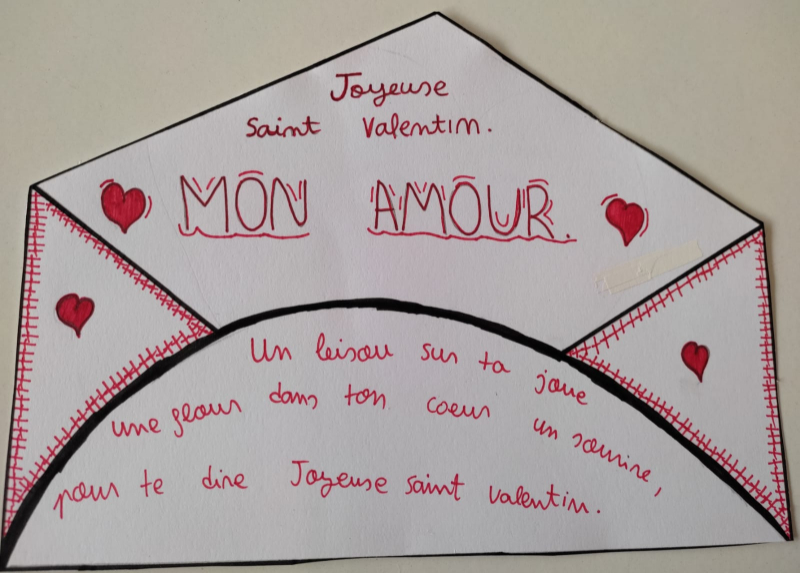 Joyeuse
Saint Valentin.
MON AMOUR.
Un bisou sur ta joue
une fleur dans ton coeur un sourire,
pour te dire Joyeuse saint valentin.